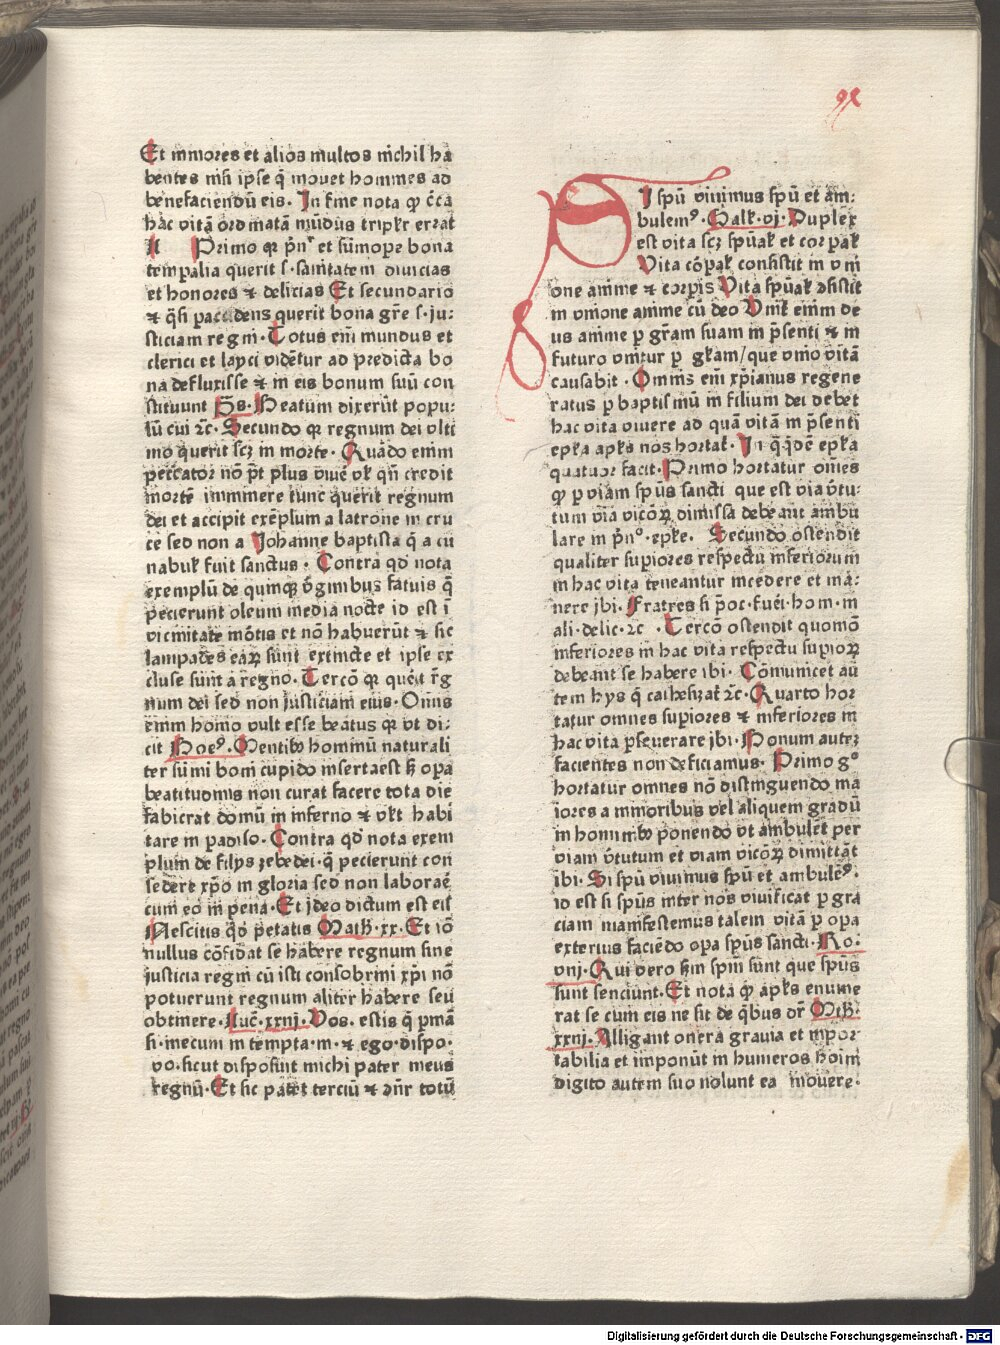 Et minores et alios multos nichil ha
bentes nisi ipse q̄ mouet homines ad
benefaciendū eis. In fine nota ꝙ cc̄a
hāc vitā ordinatā mūdus triplr̄ errat
Primo qꝛ pn̄ʳ et sūmope bona
tempalia querit s. sanitatem diuicias
et honores ⁊ delicias Et secundario
⁊ q̄si p accidens querit bona gr̄e s. iu:
sticiam regni. Totus em̄ mundus et
clerici et layci vidētur ad predicta bo
na defluxisse ⁊ in eis bonum suū con
stituunt Ps. Beatum dixerūt popu:
lū cui ⁊c. Secundo qꝛ regnum dei vlti
mo querit scꝫ in morte. Quādo enim
peccator nō pt̄ plus viuē vl̄ qn̄ credit
mortē imminere tunc querit regnum
dei et accipit exēplum a latrone in cru
ce sed non a Johanne baptista q̄ a cu
nabul̄ fuit sanctus. Contra qd̄ nota
exemplū de quinqꝫ v̄ginibus fatuis q̄
pecierunt oleum media nocte id est ī
vicinitate mōtis et nō habuerūt ⁊ sic
lampades eaꝝ sunt extincte et ipse ex
cluse sunt a regno. Tercō qꝛ querit rēg
num dei sed non iusticiam eius. Omīs
enim homo vult esse beatus qꝛ vt di:
cit Boeꝰ. Mentibꝰ hominū naturali
ter sūmi boni cupido inserta est sꝫ opa
beatitudinis non curat facere tota die
fabricat domū in inferno ⁊ vl̄t habi
tare in padiso. Contra qd̄ nota exem
plum de filys zebedei. q̄ pecierunt con
sedere xp̄o in gloria sed non laborae̅
cum eo in pena. Et ideo dictum est eis
Nescitis qd̄ petatis Math. xx. Et iō
nullus cōfidat se habere regnum sine
iusticia regni cū isti consobrini xp̄i nō
potuerunt regnum aliter habere seu
obtinere. Luc̄. xxij. Vos. estis q̄ pmā
si. mecum in tempta. m. ⁊ ego. dispo.
vo. sicut disposuit michi pater meus
regnū. Et sic patet terciū ⁊ dn̄r totū
gͨ
SI spū viuimus spū et am:
bulemꝰ. Galr̄. vj. Duplex
est vita scꝫ spūal̄ et corpal̄
Vita cōpal̄ consistit in vni
one anime ⁊ corpis Vita spūal̄ ꝯsistit
in vnione anime cū deo Vnit̄ enim de
us anime p gr̄am suam in pn̄senti ⁊ in
futuro vnitur p gl̄am/ que vnio vitā
causabit. Omnis em̄ xp̄ianus regene
ratus p baptismū in filium dei debet
hac vita viuere ad quā vitā in p̄senti
epl̄a apl̄s nos hortat̄. In q̄ qd̄e epl̄a
quatuor facit. Primo hortatur om̄es
ꝙ p viam spūs sancti que est via v̄tu:
tum via vicōꝝ dimissa debeant ambu
lare in pn̄o. epl̄e. Secundo ostendit
qualiter supiores respectu inferiorum
in hac vita teneantur incedere et ma:
nere ibi. Fratres si p̄oc. fuēi. hom. in
ali. delic. ⁊c. Tercō ostendit quomō
inferiores in hac vita respectu supioꝝ
debeant se habere ibi. Cōmunicet au
tem hys q̄ cathesizat̄ ⁊c. Quarto hor
tatur omnes supiores ⁊ inferiores in
hac vita pseuerare ibi. Bonum auteꝫ
facientes non deficiamus. Primo gͦ
hortatur omnes nō distinguendo ma
iores a minoribus vel aliquem gradū
in hominibꝰ ponendo vt ambulēt per
viam v̄tutum et viam vicōꝝ dimittāt
ibi. Si spū viuimus spū et ambulēꝰ.
id est si spūs inter nos viuificat p gra
ciam manifestemus talem vitā p opa
exterius faciēdo opa spūs sancti. Ro.
viij. Qui vero sm̄ spm̄ sunt que spūs
sunt senciunt. Et nota ꝙ apl̄s enume
rat se cum eis ne sit de q̄bus dr̄ Mth.
xxij. Alligant onera grauia et inpor
tabilia et imponūt in humeros hoīm
digito autem suo nolunt ea mouere.
Digitalisierung gefördert durch die Deutsche Forschungsgemeinschaft - DFG